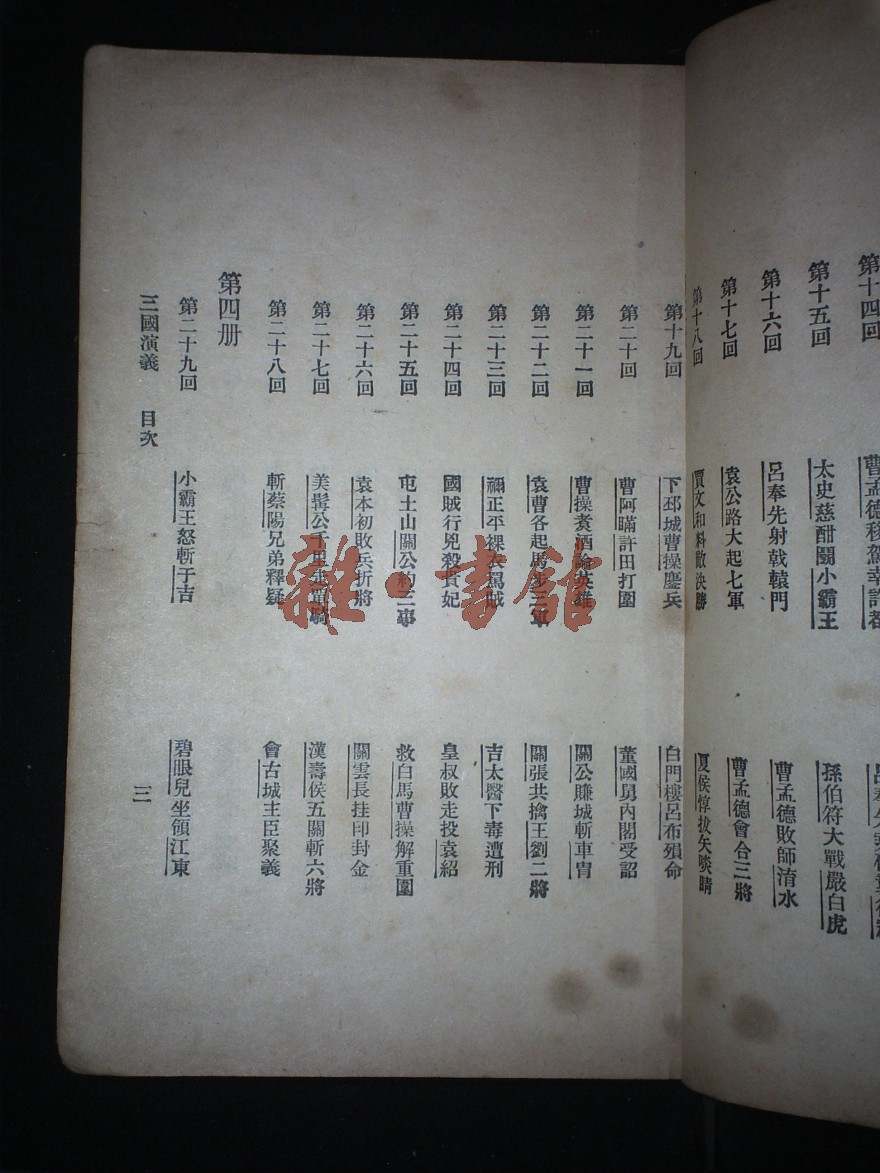 第十四回 曹孟德移駕幸許都
第十五回 太史慈酣鬭小霸王 孫伯符大戰嚴白虎
第十六回 呂奉先射戟轅門 曹孟德敗師淯水
第十七回 袁公路大起七軍 曹孟德會合三將
第十八回 賈文和料敵決勝 夏侯惇拔矢啖睛
第十九回 下邳城曹操鏖兵 白門樓呂布殞命
第二十回 曹阿瞞許田打圍 董國舅內閣受詔
第二十一回 曹操煑酒論英雄 關公賺城斬車胄
第二十二回 袁曹各起馬步三軍 關張共擒王劉二將
第二十三回 禰正平裸衣罵賊 吉太醫下毒遭刑
第二十四回 國賊行兇殺貴妃 皇叔敗走投袁紹
第二十五回 屯土山關公約三事 救白馬曹操解重圍
第二十六回 袁本初敗兵折將 關雲長挂印封金
第二十七回 美髯公千里走單騎 漢壽侯五關斬六將
第二十八回 斬蔡陽兄弟釋疑 會古城主臣聚義
第四册
第二十九回 小霸王怒斬于吉 碧眼兒坐領江東
三國演義 目次 三
雜·書館